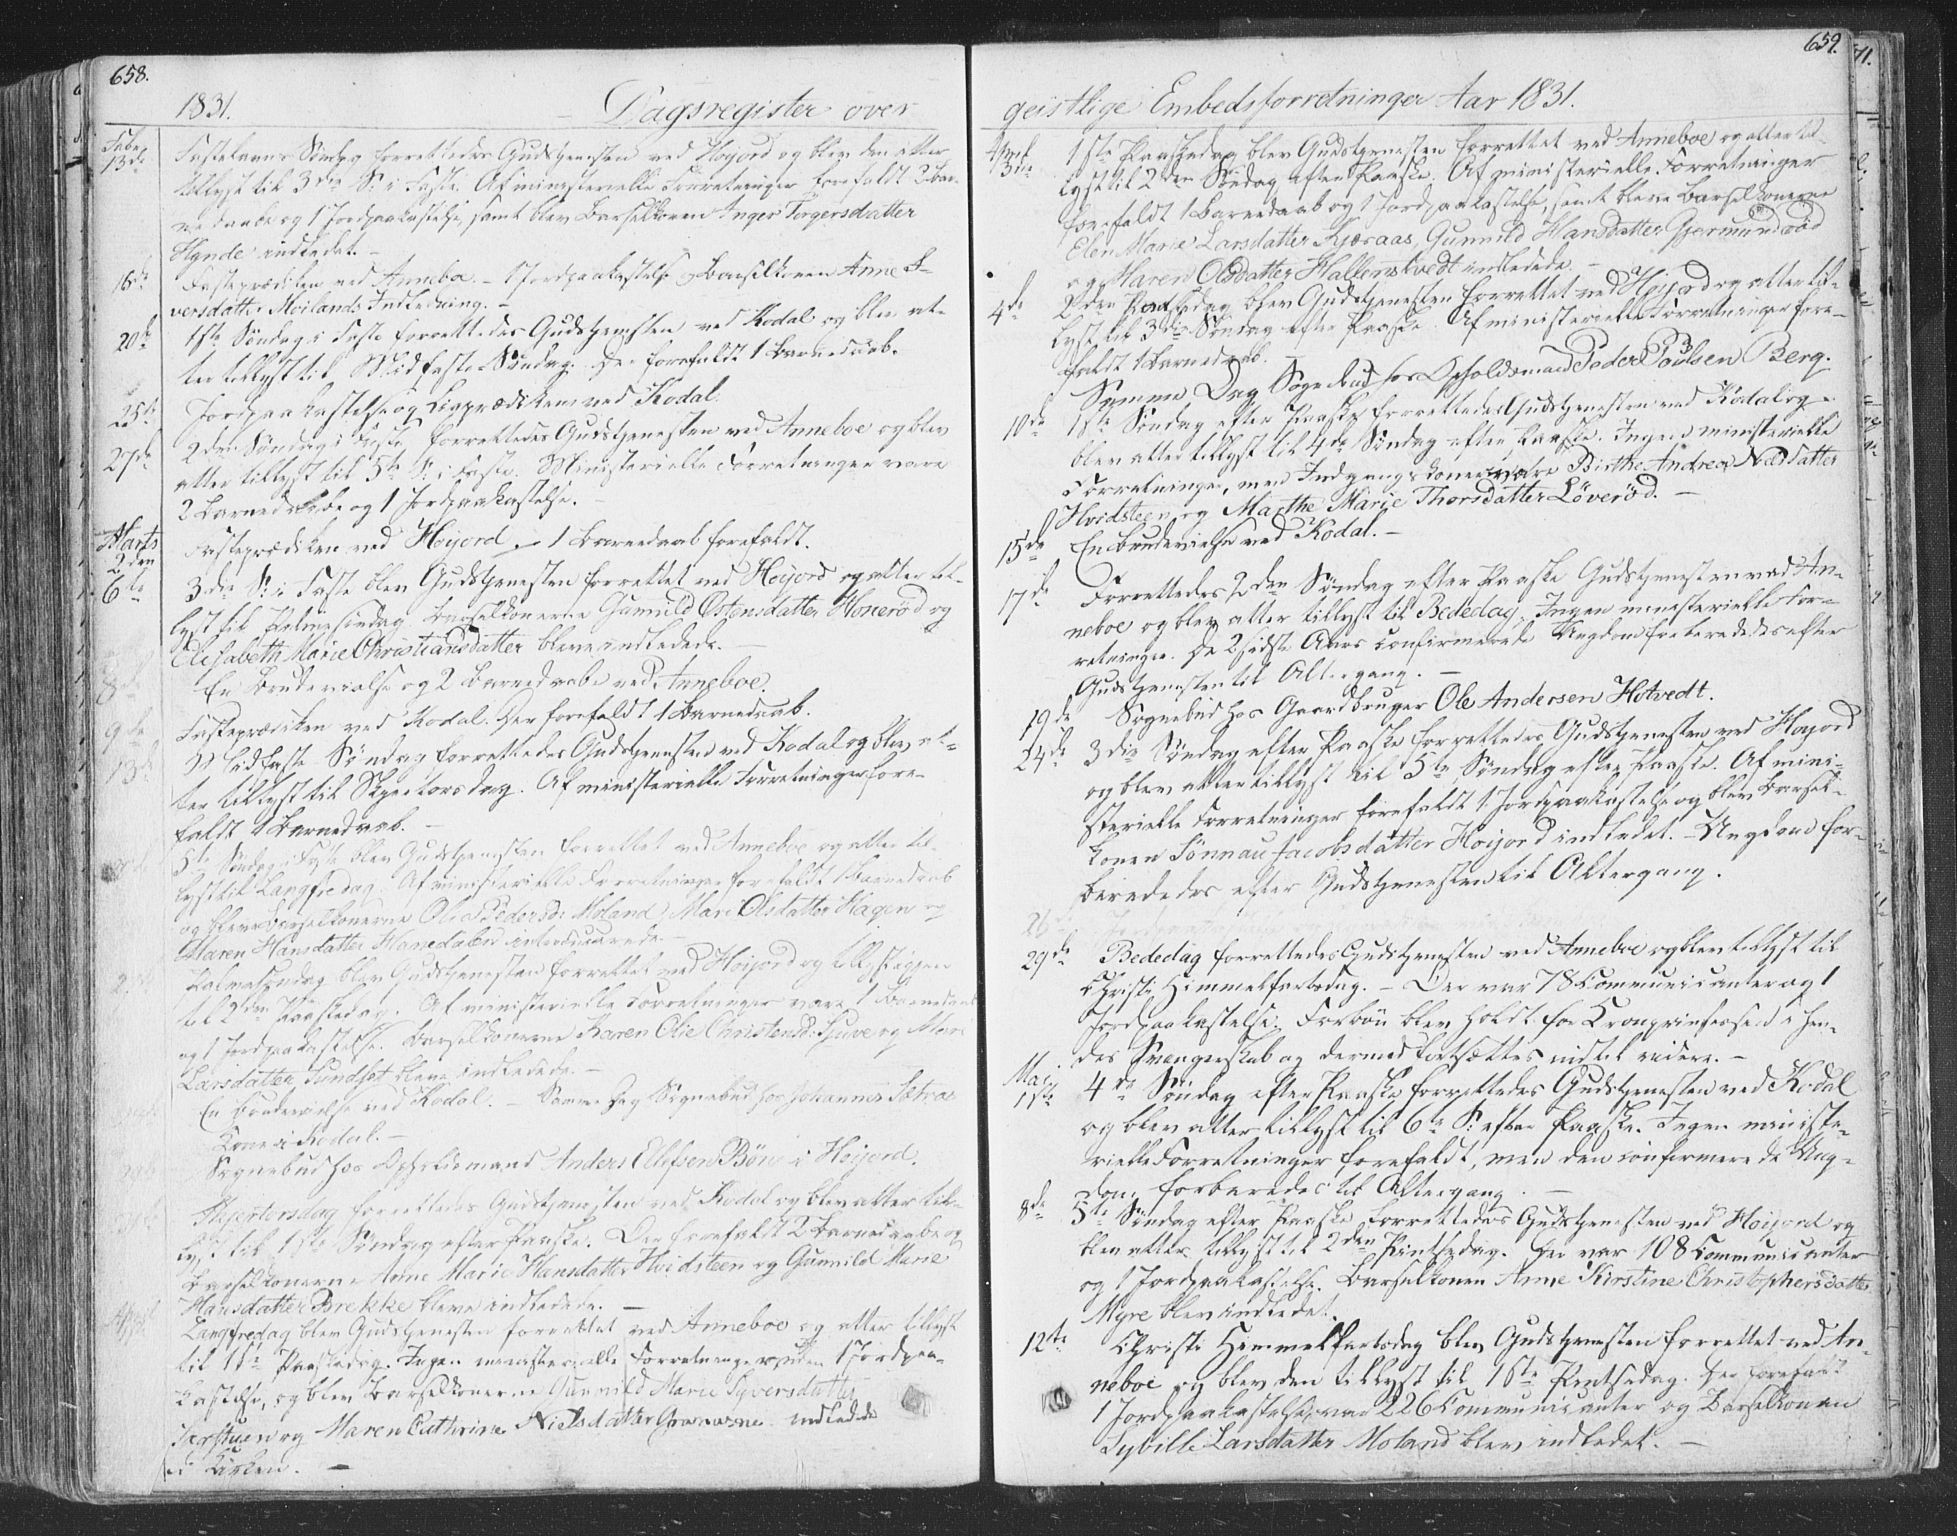 658.
1831.
Dagsregister over
Febr
13de Fastelavns Søndag forrettedes Gudstjenesten ved Høyord og blev den atter
tillyst til 3die S: i Faste. Af ministerielle Forretninger forefaldt 3 Bar-
nedaabe og 1 Jordpaakastelse, samt blev Barselkonen Inger Torgersdatter
Hynde indledet. –
16de Fasteprædiken ved Anneboe. – 1 Jordpaakastelse og Barselkonen Anne
versdatter Moilands Indledning. –
20de 1ste Søndag i Faste forrettedes Gudstjenesten ved Kodal og blev at-
ter tillyst til Midfaste Søndag. Der forefaldt 1 Barnedaab.
25de Jordpaakastelse og Liigprædiken ved Kodal.
27de 2den Søndag i Faste forrettedes Gudstjenesten ved Anneboe og blev
atter tillyst til 5te S: i Faste. Ministerielle Forretninger vare
2 Barnedaabe og 1 Jordpaakastelse. –
Marts
2den Fasteprædiken ved Høijord – 1 Barnedaab forefaldt.
6te 3die S: i Faste blev Gudstjenesten forrettet ved Høijord og atter til-
lyst til Palmesøndag. Barselkonerne Gunnild Østensdatter Honerød og
Elisabeth Marie Christiansdatter bleve indledede. –
8de En Brudevielse og 2 Barnedaabe ved Anneboe.
9de Fasteprædiken ved Kodal. Der forefaldt 1 Barnedaab.
13de Midfaste Søndag forrettedes Gudstjenesten ved Kodal og blev at-
ter tillyst til Skjertorsdag. Af ministerielle Forretninger fore-
faldt 1 Barnedaab. –
5te Søndag i Faste blev Gudstjenesten forrettet ved Anneboe og atter til-
lyst til Langfredag. Af ministerielle Forretninger forefaldt 1 Barnedaab
og bleve Barselkonerne Olie Pedersdr Moland, Mari Olsdatter Hagen og
Maren Hansdatter introducerede. –
Palmesøndag blev Gudstjenesten forrettet ved Høijord og tillyst igjen
til 2den Paaskedag. Af ministerielle Forretninger vare 1 Barnedaab
og 1 Jordpaakastelse. Barselkonerne Karen Olie Christensd: og
Larsdatter Sundset bleve indledede. –
En Brudevielse ved Kodal. – Samme Dag Sognebud hos Johannes Sætraas
Kone i Kodal. –
Sognebud hos Opholdsmand Anders Ellefsen Bøn i Høijord.
Skjertorsdag forrettedes Gudstjenesten ved Kodal og blev atter til-
lyst til 1ste Søndag efter Paaske. Der forefaldt 2 Barnedaabe og
Barselkonerne Anne Marie Hansdatter Hvidsteen og Gunnild Marie
Hansdatter Brekke bleve indledede. –
April
Langfredag blev Gudstjenesten forrettet ved Anneboe og atter tillyst
til 1ste Paaskedag. Ingen ministerielle Forretninger uden 1 Jordpaa-
kastelse, og blev Barselkonerne Gunnild Marie Syversdatter
og Maren Cathrine Nielsdatter indledede
i Kirken. –
659.
geistlige Embedsforretninger Aar 1831.
April
3die 1ste Paaskedag blev Gudstjenesten forrettet ved Anneboe og atter til-
lyst til 2den Søndag efter Paaske. Af ministerielle Forretninger
forefaldt 1 Barnedaab og 1 Jordpaakastelse, samt bleve Barselkonerne
Elen Marie Larsdatter Kjæraas, Gunnild Hansdatter Gjermundrød
og Maren Olsdatter Hallenstvedt indledede. –
4de 2den Paaskedag blev Gudstjenesten forrettet ved Høijord og atter til-
lyst til 3die Søndag efter Paaske. Af ministerielle Forretninger fore-
faldt 1 Barnedaab.
Samme Dag Sognebud hos Opholdsmand Peder Poulsen Berg.
10de 1ste Søndag efter Paaske forrettedes Gudstjenesten ved Kodal og
blev atter tillyst til 4de Søndag efter Paaske. Ingen ministerielle
Forretninger, men Indgangskonerne vare Birthe Andrea
Hvidsteen og Marthe Marie Thorsdatter Løverød. –
15de En Brudevielse ved Kodal. –
17de Forrettedes 2den Søndag efter Paaske Gudstjenesten ved An-
neboe og blev atter tillyst til Bededag. Ingen ministerielle For-
retninger. De 2 sidste Aars confirmerede Ungdom forberededes efter
Gudstjenesten til Altergang. –
19de Sognebud hos Gaardbruger Ole Andersen Hotvedt.
24de 3die Søndag efter Paaske forrettedes Gudstjenesten ved Høyord
og blev atter tillyst til 5te Søndag efter Paaske. Af mini-
sterielle Forretninger forefaldt 1 Jordpaakastelse og blev Barsel-
konen Sønnau Jacobsdatter Høijord indledet. – Ungdom for-
berededes efter Gudstjenesten til Altergang.
26
29de Bededag forrettedes Gudstjenesten ved Anneboe og blev tillyst til
Christi Himmelfartsdag. – Der var 78 Communicanter og 1
Jordpaakastelse. Forbøn blev holdt for Kronprinsessen i hen-
des Svangerskab og dermed fortsættes indtil videre. –
Mai
1ste 4de Søndag efter Paaske forrettedes Gudstjenesten ved Kodal
og blev atter tillyst til 6te S: efter Paaske. Ingen ministe-
rielle Forretninger forefaldt, men den confirmerede Ung-
dom forberedes til Altergang. –
8de 5te Søndag efter Paaske forrettedes Gudstjenesten ved Høijord og
blev atter tillyst til 2den Pintsedag. Der var 108 Communicanter
og 1 Jordpaakastelse. Barselkonen Anne Kirstine Christophersdatter
Myre blev indledet.
12te Christi Himmelfartsdag blev Gudstjenesten forrettet ved An-
neboe og blev den tillyst til 1ste Pintsedag. Der forefaldt
1 Jordpaakastelse, var 226 Communicanter og Barselkonen
Sybille Larsdatter Moland blev indledet. –